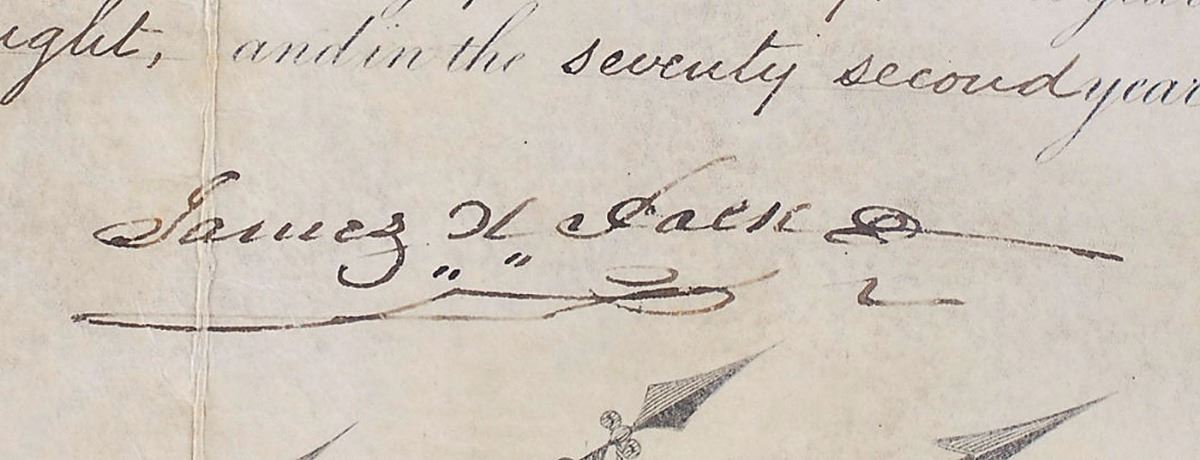 ight, and in the seventy second year
James K Polk